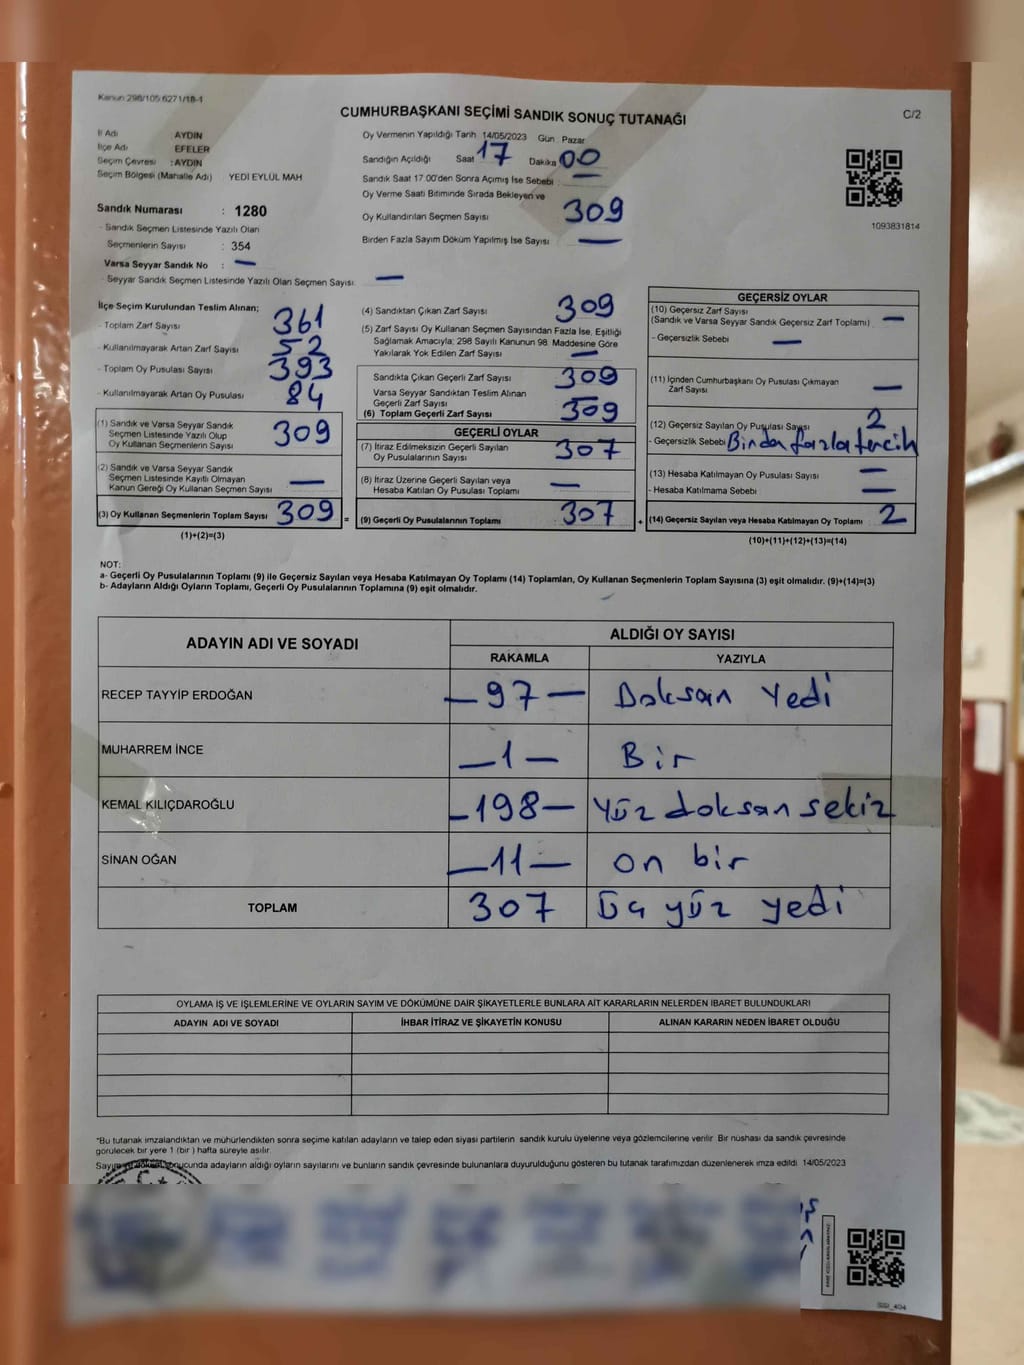 Kanun 298/105 6271/18-1
CUMHURBAŞKANI SEÇİMİ SANDIK SONUÇ TUTANAĞI
C/2
İl Adı AYDIN
İlçe Adı EFELER
Seçim Çevresi : AYDIN
Seçim Bölgesi (Mahalle Adı) YEDİ EYLÜL MAH
Sandık Numarası : 1280
- Sandık Seçmen Listesinde Yazılı Olan
Seçmenlerin Sayısı : 354
Varsa Seyyar Sandık No : —
- Seyyar Sandık Seçmen Listesinde Yazılı Olan Seçmen Sayısı: —
Oy Vermenin Yapıldığı Tarih 14/05/2023 Gün Pazar
Sandığın Açıldığı Saat 17 Dakika 00
Sandık Saat 17.00'den Sonra Açımış İse Sebebi : —
Oy Verme Saati Bitiminde Sırada Bekleyen ve
Oy Kullandırılan Seçmen Sayısı 309
Birden Fazla Sayım Döküm Yapılmış İse Sayısı —
1093831814
İlçe Seçim Kurulundan Teslim Alınan;
- Toplam Zarf Sayısı 361
- Kullanılmayarak Artan Zarf Sayısı 52
- Toplam Oy Pusulası Sayısı 393
- Kullanılmayarak Artan Oy Pusulası 84
(1) Sandık ve Varsa Seyyar Sandık
Seçmen Listesinde Yazılı Olup
Oy Kullanan Seçmenlerin Sayısı 309
(2) Sandık ve Varsa Seyyar Sandık
Seçmen Listesinde Kayıtlı Olmayan
Kanun Gereği Oy Kullanan Seçmen Sayısı —
(3) Oy Kullanan Seçmenlerin Toplam Sayısı 309 =
(1)+(2)=(3)
(4) Sandıktan Çıkan Zarf Sayısı 309
(5) Zarf Sayısı Oy Kullanan Seçmen Sayısından Fazla İse, Eşitliği
Sağlamak Amacıyla; 298 Sayılı Kanunun 98. Maddesine Göre
Yakılarak Yok Edilen Zarf Sayısı —
Sandıkta Çıkan Geçerli Zarf Sayısı 309
Varsa Seyyar Sandıktan Teslim Alınan
Geçerli Zarf Sayısı —
(6) Toplam Geçerli Zarf Sayısı 309
GEÇERLİ OYLAR
(7) İtiraz Edilmeksizin Geçerli Sayılan
Oy Pusulalarının Sayısı 307
(8) İtiraz Üzerine Geçerli Sayılan veya
Hesaba Katılan Oy Pusulası Toplamı —
(9) Geçerli Oy Pusulalarının Toplamı 307 +
GEÇERSİZ OYLAR
(10) Geçersiz Zarf Sayısı
(Sandık ve Varsa Seyyar Sandık Geçersiz Zarf Toplamı) —
- Geçersizlik Sebebi —
(11) İçinden Cumhurbaşkanı Oy Pusulası Çıkmayan
Zarf Sayısı —
(12) Geçersiz Sayılan Oy Pusulası Sayısı 2
- Geçersizlik Sebebi Birdan fazla tercih
(13) Hesaba Katılmayan Oy Pusulası Sayısı —
- Hesaba Katılmama Sebebi —
(14) Geçersiz Sayılan veya Hesaba Katılmayan Oy Toplamı 2
(10)+(11)+(12)+(13)=(14)
NOT:
a- Geçerli Oy Pusulalarının Toplamı (9) ile Geçersiz Sayılan veya Hesaba Katılmayan Oy Toplamı (14) Toplamları, Oy Kullanan Seçmenlerin Toplam Sayısına (3) eşit olmalıdır. (9)+(14)=(3)
b- Adayların Aldığı Oyların Toplamı, Geçerli Oy Pusulalarının Toplamına (9) eşit olmalıdır.
ADAYIN ADI VE SOYADI ALDIĞI OY SAYISI
RAKAMLA YAZIYLA
RECEP TAYYİP ERDOĞAN —97— Doksan Yedi
MUHARREM İNCE —1— Bir
KEMAL KILIÇDAROĞLU —198— Yüz doksan sekiz
SİNAN OĞAN —11— on bir
TOPLAM 307 üç yüz yedi
OYLAMA İŞ VE İŞLEMLERİNE VE OYLARIN SAYIM VE DÖKÜMÜNE DAİR ŞİKAYETLERLE BUNLARA AİT KARARLARIN NELERDEN İBARET BULUNDUKLARI
ADAYIN ADI VE SOYADI İHBAR İTİRAZ VE ŞİKAYETİN KONUSU ALINAN KARARIN NEDEN İBARET OLDUĞU
*Bu tutanak imzalandıktan ve mühürlendikten sonra seçime katılan adayların ve talep eden siyasi partilerin sandık kurulu üyelerine veya gözlemcilerine verilir. Bir nüshası da sandık çevresinde
görülecek bir yere 1 (bir) hafta süreyle asılır.
Sayım ve döküm sonucunda adayların aldığı oyların sayılarını ve bunların sandık çevresinde bulunanlara duyurulduğunu gösteren bu tutanak tarafımızdan düzenlenerek imza edildi 14/05/2023